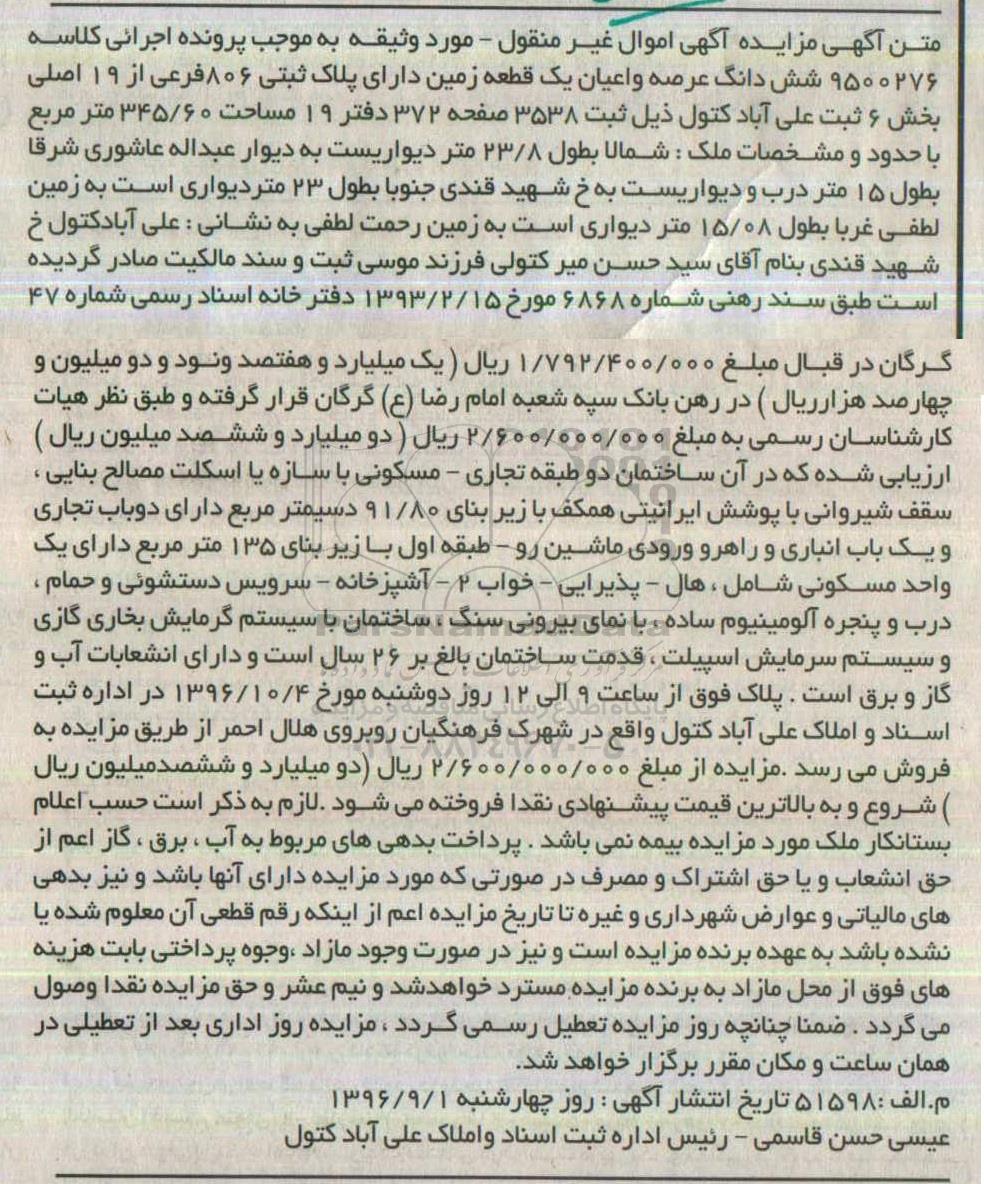 متن آگهی مزایده آگهی اموال غیر منقول - مورد وثیقه به موجب پرونده اجرائی کلاسه
۹۵۰۰۲۷۶ شش دانگ عرصه واعیان یک قطعه زمین دارای پلاک ثبتی ۸۰۶فرعی از ۱۹ اصلی
بخش ۶ ثبت علی آباد کتول ذیل ثبت ۳۵۳۸ صفحه ۳۷۲ دفتر ۱۹ مساحت ۳۴۵/۶۰ متر مربع
با حدود و مشخصات ملک : شمالا بطول ۲۳/۸ متر دیواریست به دیوار عبداله عاشوری شرقا
بطول ۱۵ متر درب و دیواریست به خ شهید قندی جنوبا بطول ۲۳ متردیواری است به زمین
لطفی غربا بطول ۱۵/۰۸ متر دیواری است به زمین رحمت لطفی به نشانی : علی آبادکتول خ
شهید قندی بنام آقای سید حسن میر کتولی فرزند موسی ثبت و سند مالکیت صادر گردیده
است طبق سند رهنی شماره ۶۸۶۸ مورخ ۱۳۹۳/۲/۱۵ دفتر خانه اسناد رسمی شماره ۴۷
گرگان در قبال مبلغ ۱/۷۹۲/۴۰۰/۰۰۰ ریال ( یک میلیارد و هفتصد ونود و دو میلیون و
چهارصد هزارریال ) در رهن بانک سپه شعبه امام رضا (ع) گرگان قرار گرفته و طبق نظر هیات
کارشناسان رسمی به مبلغ ۲/۶۰۰/۰۰۰/۰۰۰ ریال ( دو میلیارد و ششصد میلیون ریال )
ارزیابی شده که در آن ساختمان دو طبقه تجاری - مسکونی با سازه یا اسکلت مصالح بنایی ،
سقف شیروانی با پوشش ایرانیتی همکف با زیر بنای ۹۱/۸۰ دسیمتر مربع دارای دوباب تجاری
و یک باب انباری و راهرو ورودی ماشین رو - طبقه اول با زیر بنای ۱۳۵ متر مربع دارای یک
واحد مسکونی شامل ، هال - پذیرایی - خواب ۲ - آشپزخانه - سرویس دستشوئی و حمام ،
درب و پنجره آلومینیوم ساده ، با نمای بیرونی سنگ ، ساختمان با سیستم گرمایش بخاری گازی
و سیستم سرمایش اسپیلت ، قدمت ساختمان بالغ بر ۲۶ سال است و دارای انشعابات آب و
گاز و برق است . پلاک فوق از ساعت ۹ الی ۱۲ روز دوشنبه مورخ ۱۳۹۶/۱۰/۴ در اداره ثبت
اسناد و املاک علی آباد کتول واقع در شهرک فرهنگیان روبروی هلال احمر از طریق مزایده به
فروش می رسد .مزایده از مبلغ ۲/۶۰۰/۰۰۰/۰۰۰ ریال (دو میلیارد و ششصدمیلیون ریال
) شروع و به بالاترین قیمت پیشنهادی نقدا فروخته می شود .لازم به ذکر است حسب اعلام
بستانکار ملک مورد مزایده بیمه نمی باشد . پرداخت بدهی های مربوط به آب ، برق ، گاز اعم از
حق انشعاب و یا حق اشتراک و مصرف در صورتی که مورد مزایده دارای آنها باشد و نیز بدهی
های مالیاتی و عوارض شهرداری و غیره تا تاریخ مزایده اعم از اینکه رقم قطعی آن معلوم شده یا
نشده باشد به عهده برنده مزایده است و نیز در صورت وجود مازاد ،وجوه پرداختی بابت هزینه
های فوق از محل مازاد به برنده مزایده مسترد خواهدشد و نیم عشر و حق مزایده نقدا وصول
می گردد . ضمنا چنانچه روز مزایده تعطیل رسمی گردد ، مزایده روز اداری بعد از تعطیلی در
همان ساعت و مکان مقرر برگزار خواهد شد.
م.الف :۵۱۵۹۸ تاریخ انتشار آگهی : روز چهارشنبه ۱۳۹۶/۹/۱
عیسی حسن قاسمی - رئیس اداره ثبت اسناد واملاک علی آباد کتول